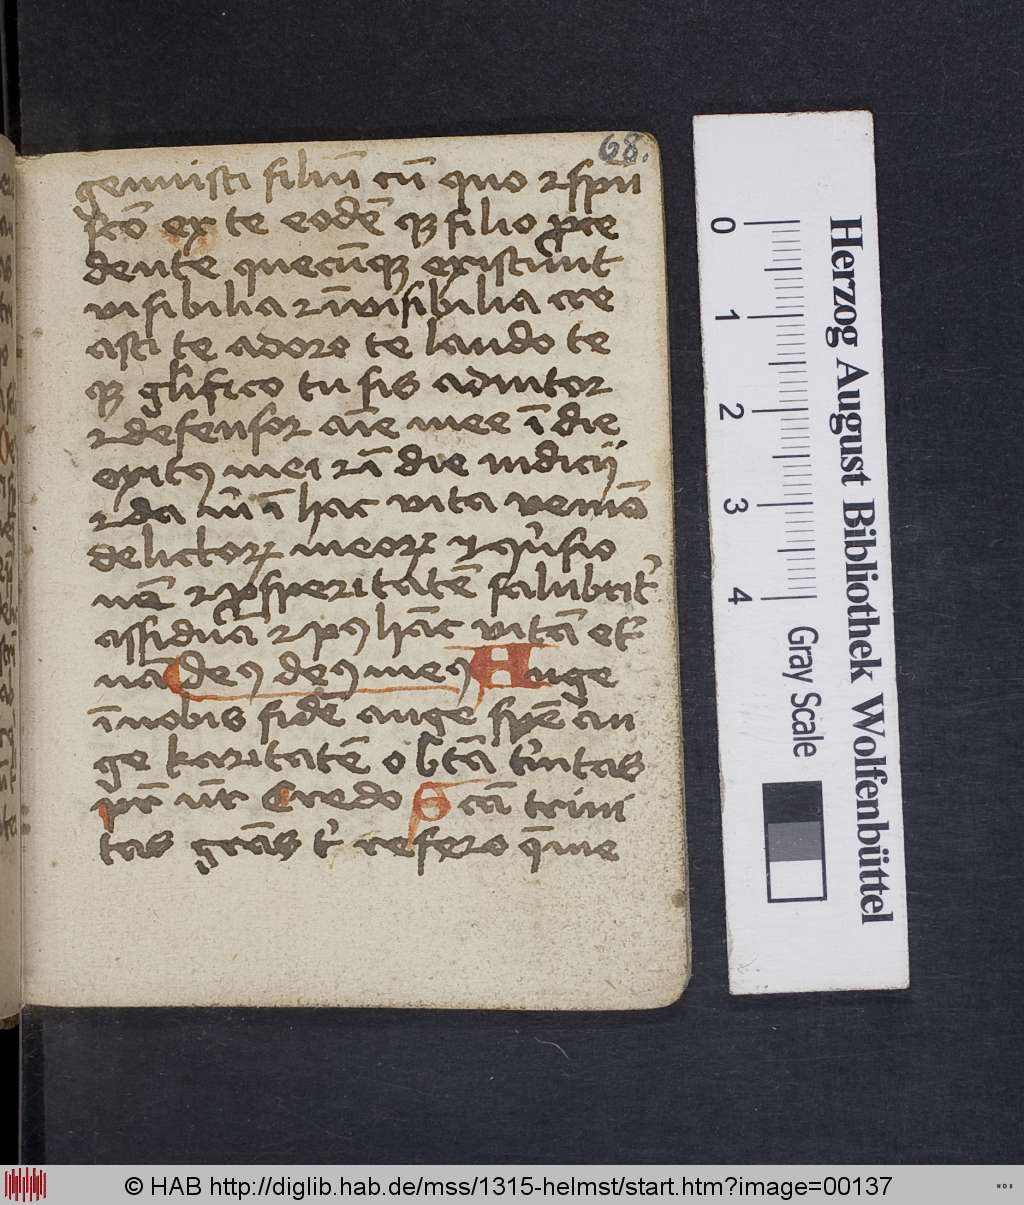 68.
genuisti filiū cū quo ⁊ spū
sc̄o ex te eodē qꝫ filio ꝓce
dente quecūqꝫ existūt
visibilia ⁊ īvisibilia cre
asti te adoro te laudo te
qꝫ gl̄ifico tu sis adiutor
⁊ defensor aīe mee ī die
exitꝰ mei ⁊ ī die iudicij
⁊ da m̄ ī hac vita veniā
delictoꝝ meoꝝ
nē ⁊ ꝓsperitatē
assiduā ⁊ pꝰ hāc vitā et̄
nā deꝰ deꝰ meꝰ Auge
ī nobis fidē auge spē au
ge karitatē o btā t̓nitas
pr̄ nr̄ Credo S cā trini
tas gr̄as t̓ refero q̄ me
0
1
2
3
4
Herzog August Bibliothek Wolfenbüttel
Gray Scale
© HAB http://diglib.hab.de/mss/1315-helmst/start.htm?image=00137